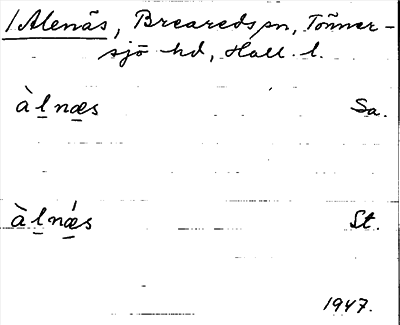 /Alenäs, Breareds sn, Tönner-
sjö hd, Hall. l.
àl̲næ̲s Sa.
àl̲nǽ̲s St.
1947.